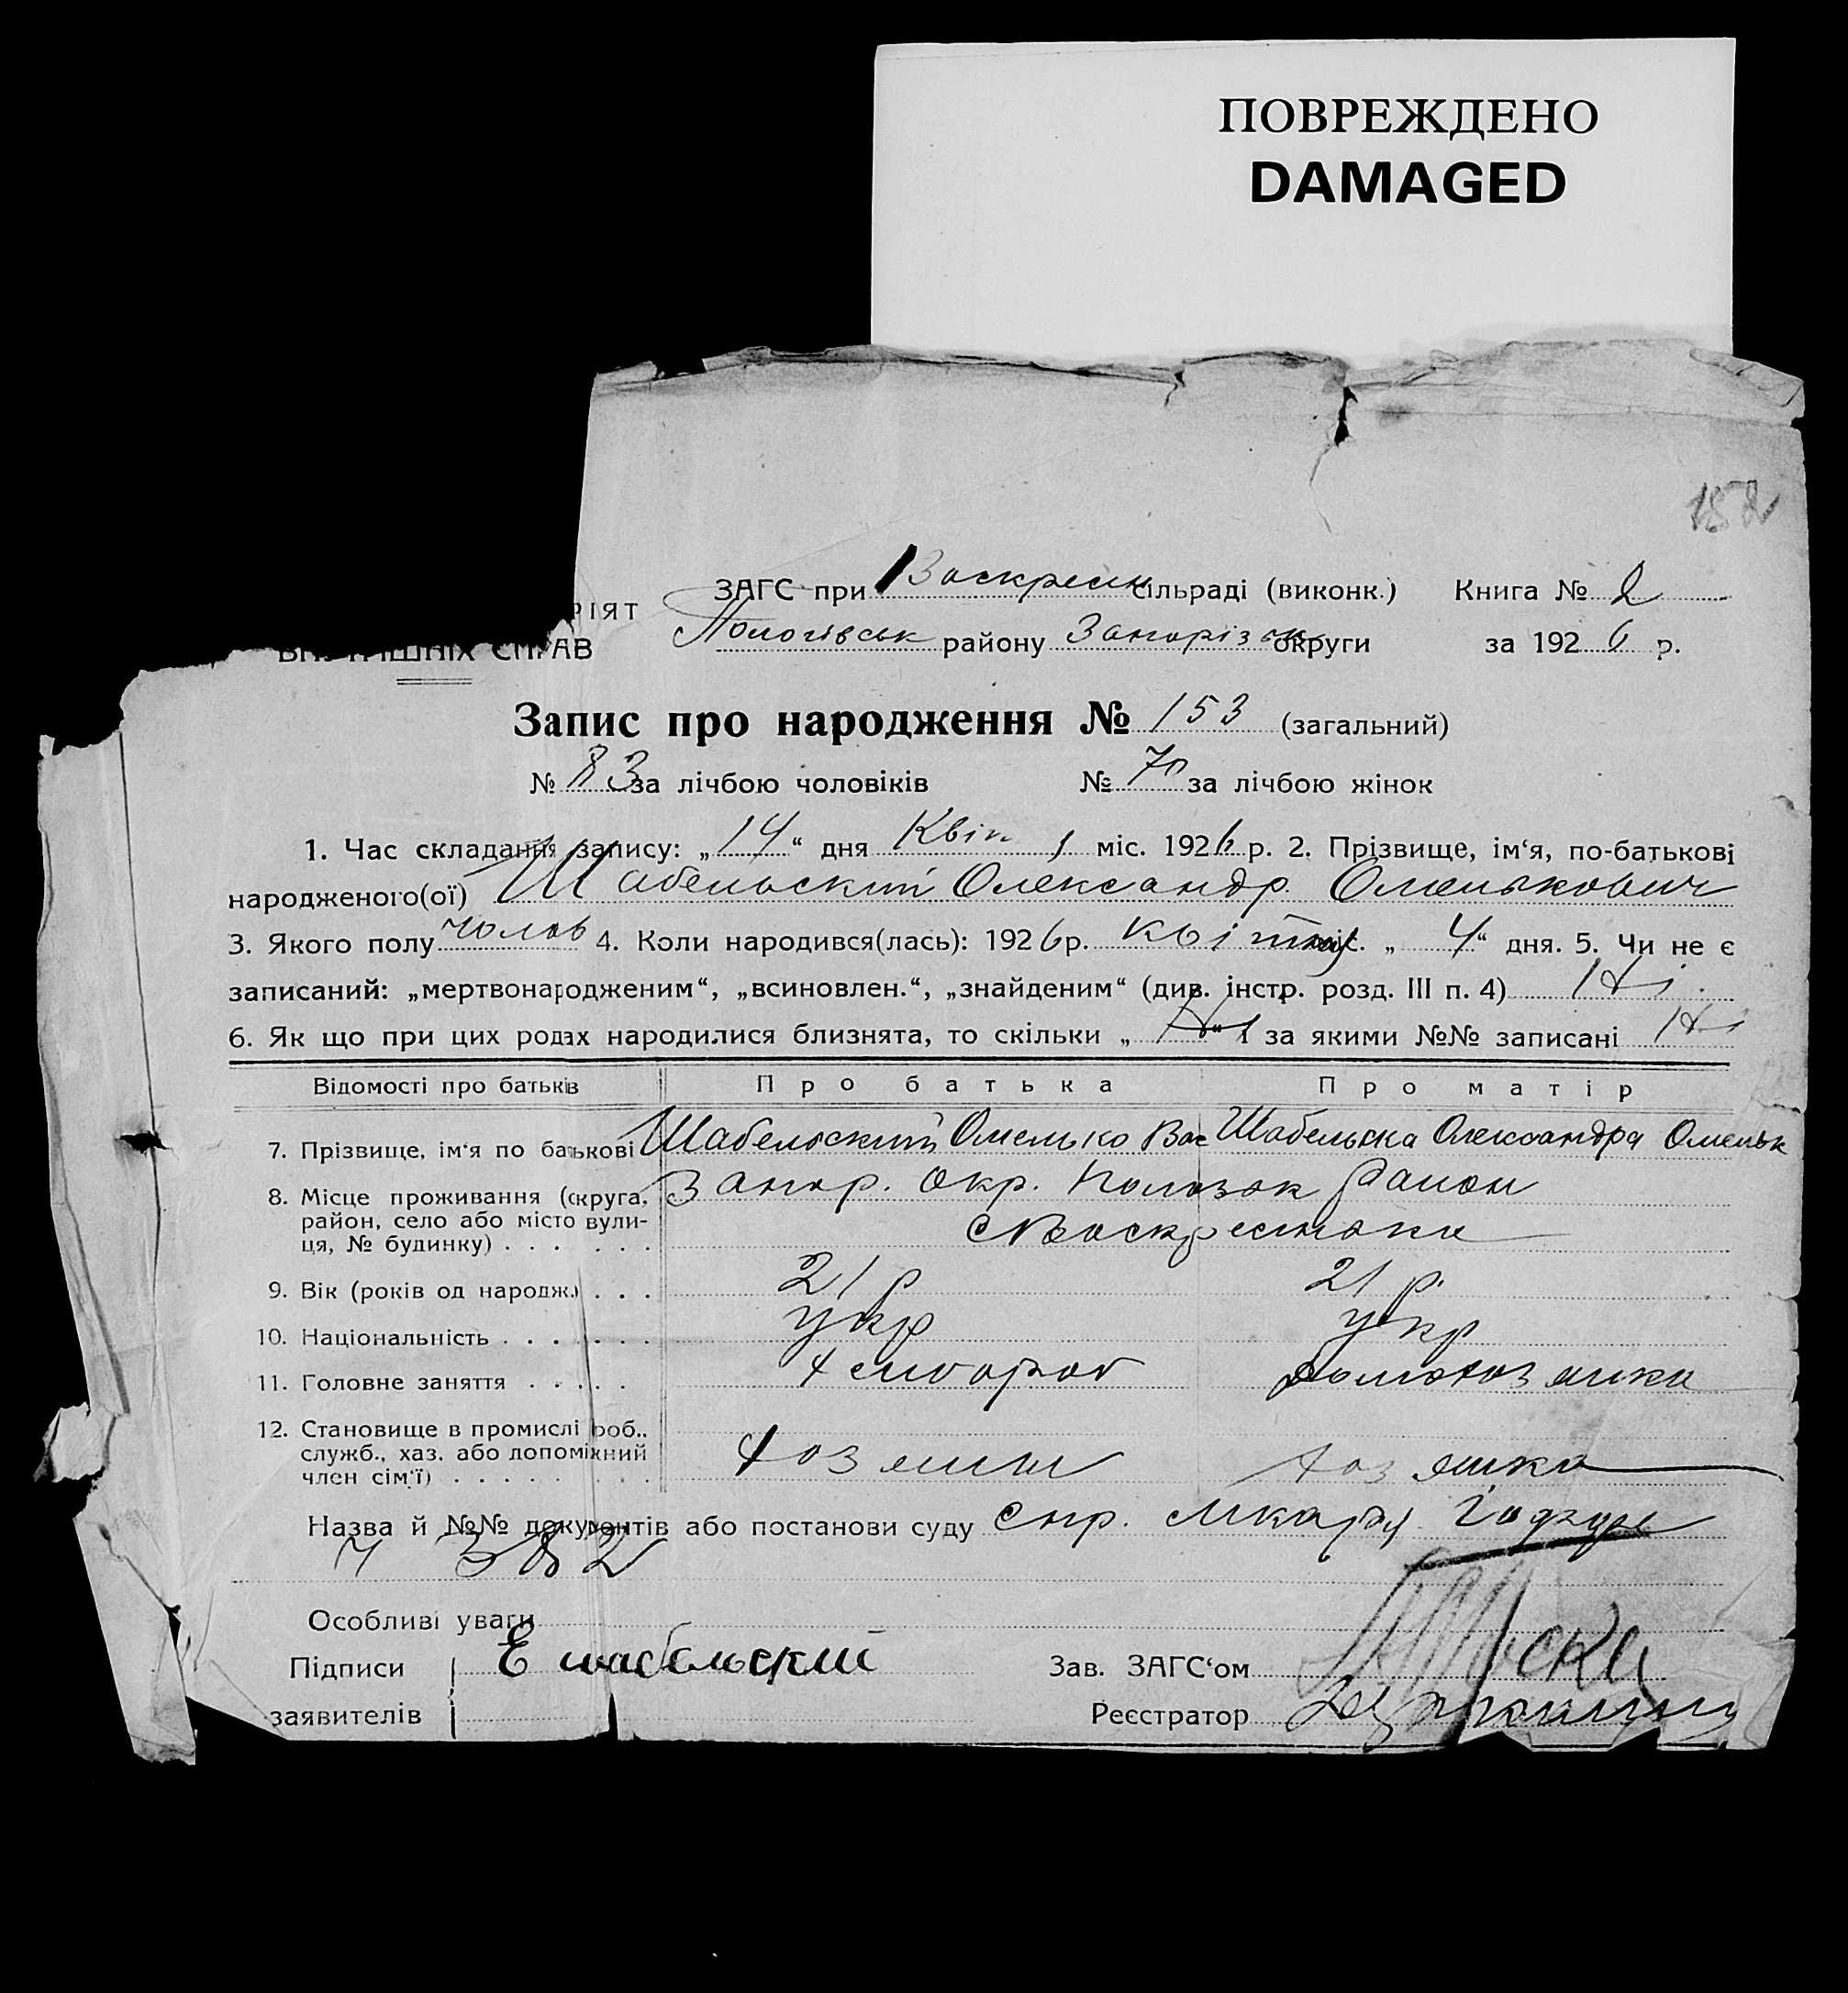 ПОВРЕЖДЕНО
DAMAGED
152
ЗАГС при Воскресен сільраді (виконк.) Книга № 2
РІЯТ
Пологівськ району Запоріз округи за 1926 р.
ВНУТРІШНІХ СПРАВ
Запис про народження № 153 (загальний)
№ 83 за лічбою чоловіків № 70 за лічбою жінок
1. Час складання запису: „14“ дня Квіт міс. 1926 р. 2. Прізвище, ім‘я, по-батькові
народженого(ої) Шабельский Олександр Омелькович
3. Якого полу чолов 4. Коли народився(лась): 1926 р. Квітня міс. „4“ дня. 5. Чи не є
записаний: „мертвонародженим“, „всиновлен.“, „знайденим“ (див. інстр. розд. III п. 4) Ні.
6. Як що при цих родах народилися близнята, то скільки „Ні“ і за якими №№ записані Ні
Відомості про батьків Про батька Про матір
7. Прізвище, ім‘я по батькові Шабельский Омелько Вас Шабельска Олександра Омельк
8. Місце проживання (округа, Запор. Окр. Район
район, село або місто вули- с Воскресенка
ця, № будинку) . . . . . .
9. Вік (років од народж.) . . . 21 р 21 р.
10. Національність . . . . . . укр укр
11. Головне заняття . . . . . хлібороб домохозяика
12. Становище в промислі (роб.,
служб., хаз. або допоміжний хозяин хозяика
член сім‘ї) . . . . . . . .
Назва й №№ документів або постанови суду Спр.
Ч 382
Особливі уваги
Підписи Е шабельский Зав. ЗАГС‘ом
заявителів Реєстратор